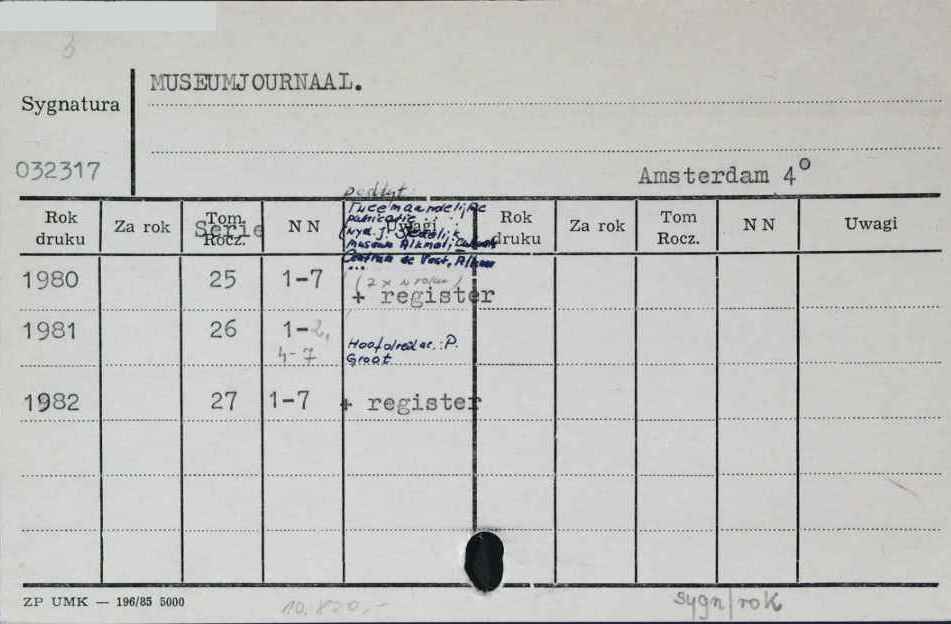 3
MUSEUMJOURNAAL.
Sygnatura
032317
Amsterdam 4°
Podtyt.
Rok druku Za rok Tom Rocz. Serie N N Uwagi Rok druku Za rok Tom Rocz. N N Uwagi
Tweemaandelijke
publicatie
Wyd.: Stedelijk
Museum Alkmaar
Centrum de Vest, Alkmaar
...
1980 25 1-7 (2 x w roku)
+ register
1981 26 1-2,
4-7
Hoofdredac.: P.
Groot
1982 27 1-7 + register
ZP UMK — 196/85 5000
10.820,-
sygn/rok